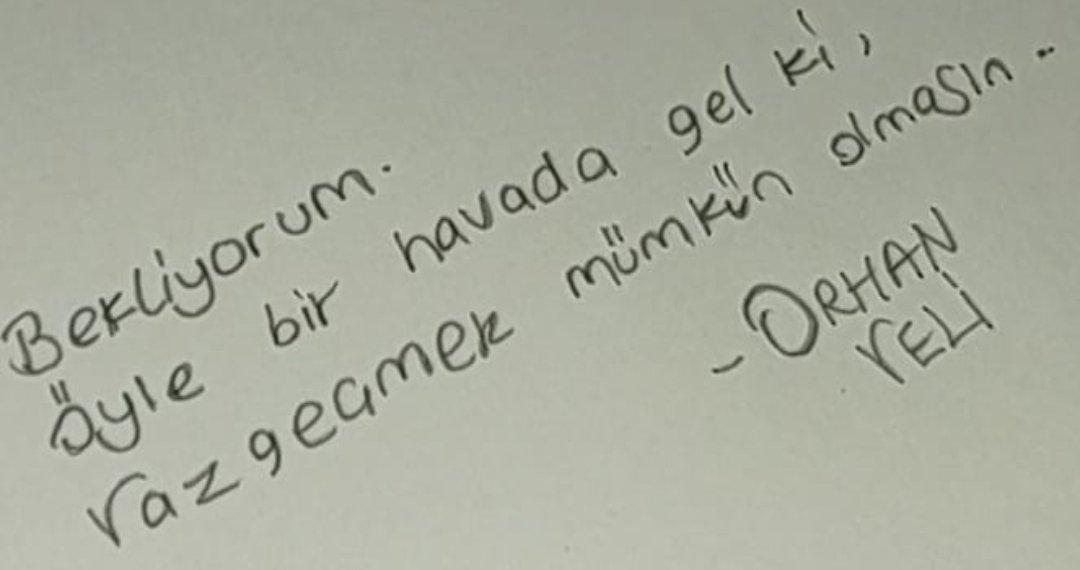 Bekliyorum.
Öyle bir havada gel ki,
Vazgeçmek mümkün olmasın.
- ORHAN
VELİ